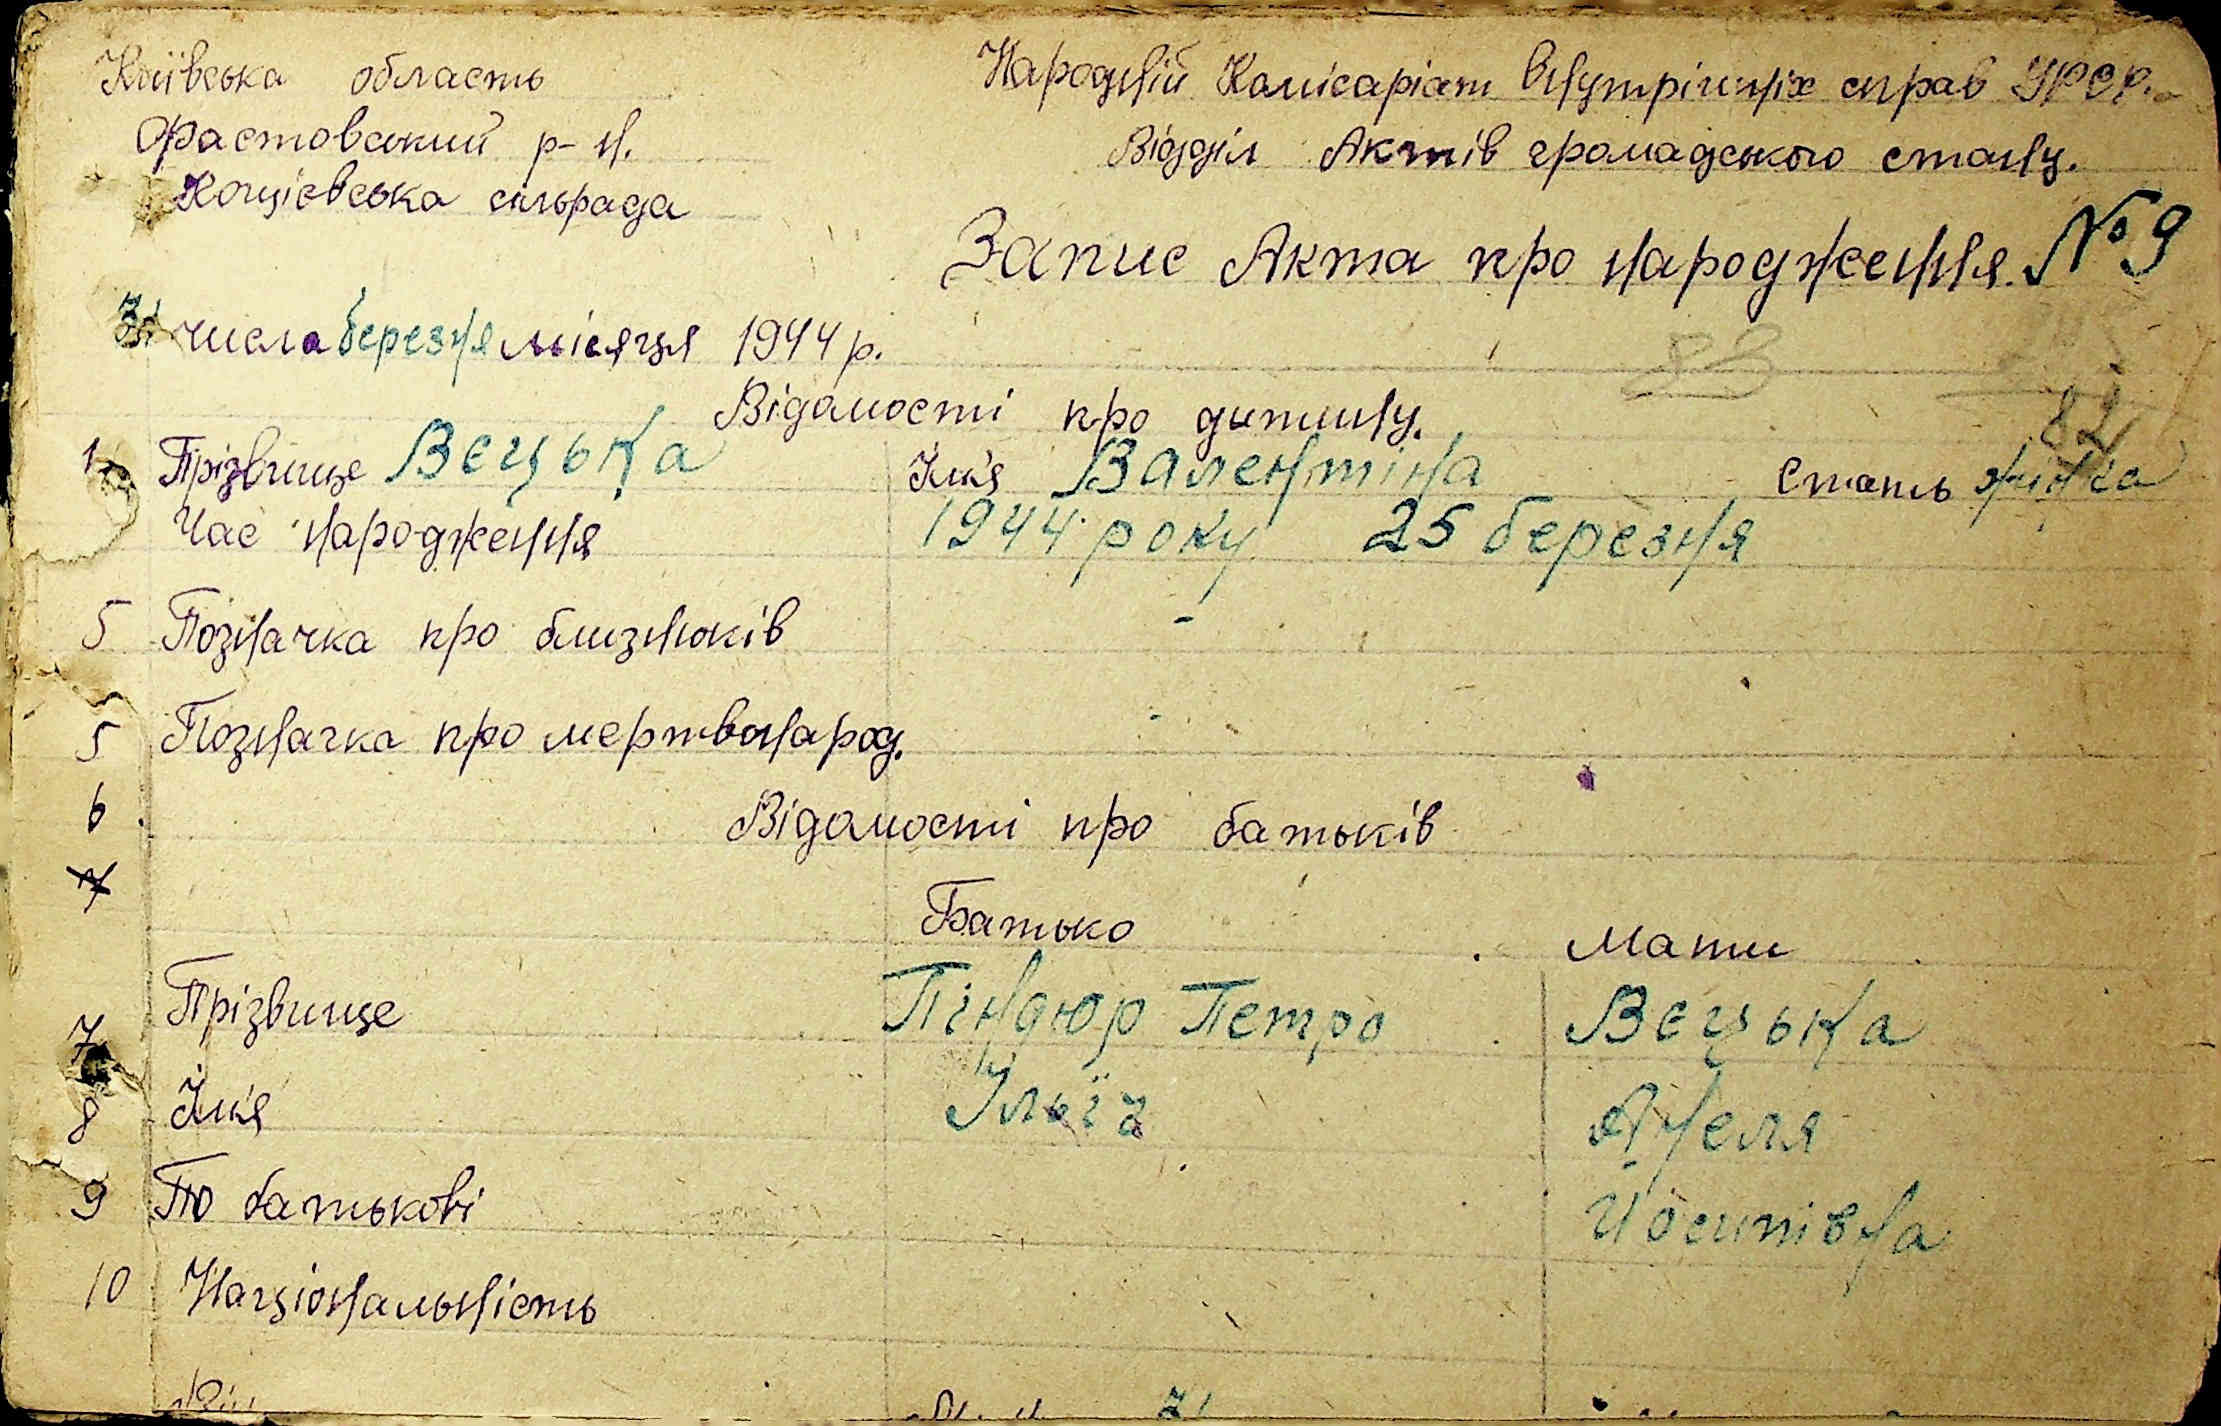 Київська область
Народній Комісаріат Внутрішніх справ УРСР.
Фастовський р-н.
Відділ Актів громадського стану.
Кощієвська сільрада
Запис Акта про народження. № 9
31 числа березня місяця 1944 р.
83
Відомості про дитину.
82
1. Прізвище Вецька Імʼя Валентіна Стать жінка
Час народження 1944 року 25 березня
5 Позначка про близнюків -
5 Позначка про мертвонарод. -
6 Відомості про батьків
7
Батько Мати
7 Прізвище Піндюр Петро Вецька
8 Імʼя Ількo Анеля
9 По батькові Йосипівна
10 Національність